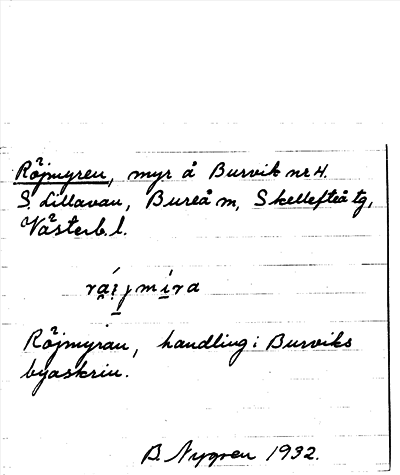 Röjmyren, myr å Burvik nr 4.
S. Lillavan, Bureå m, Skellefteå tg,
Västerb. l.
Röjmyran, handling i Burviks
byaskrin.
B. Nygren 1932.